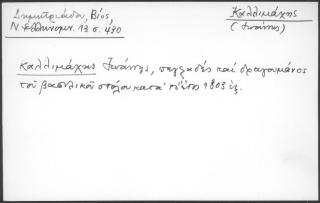 Δημητριάδου, Βίος,
Ν. Ελληνομν. 13 σ. 430
Καλλιμάχης
(Ἰωάννης)
Καλλιμάχης Ἰωάννης, μπεηζαδὲς καὶ δραγομάνος
τοῦ βασιλικοῦ στόλου κατὰ τὸ ἔτος 1803 ἱξ.